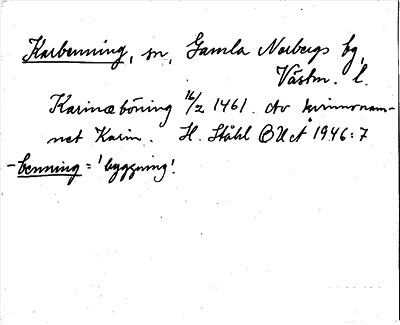 Karbenning, sn, Gamla Norbergs bg,
Västm. l.
Karinæböning 16/2 1461. Av kvinnonam-
net Karin. H. Ståhl OUÅ 1946:7
-benning = 'byggning'.